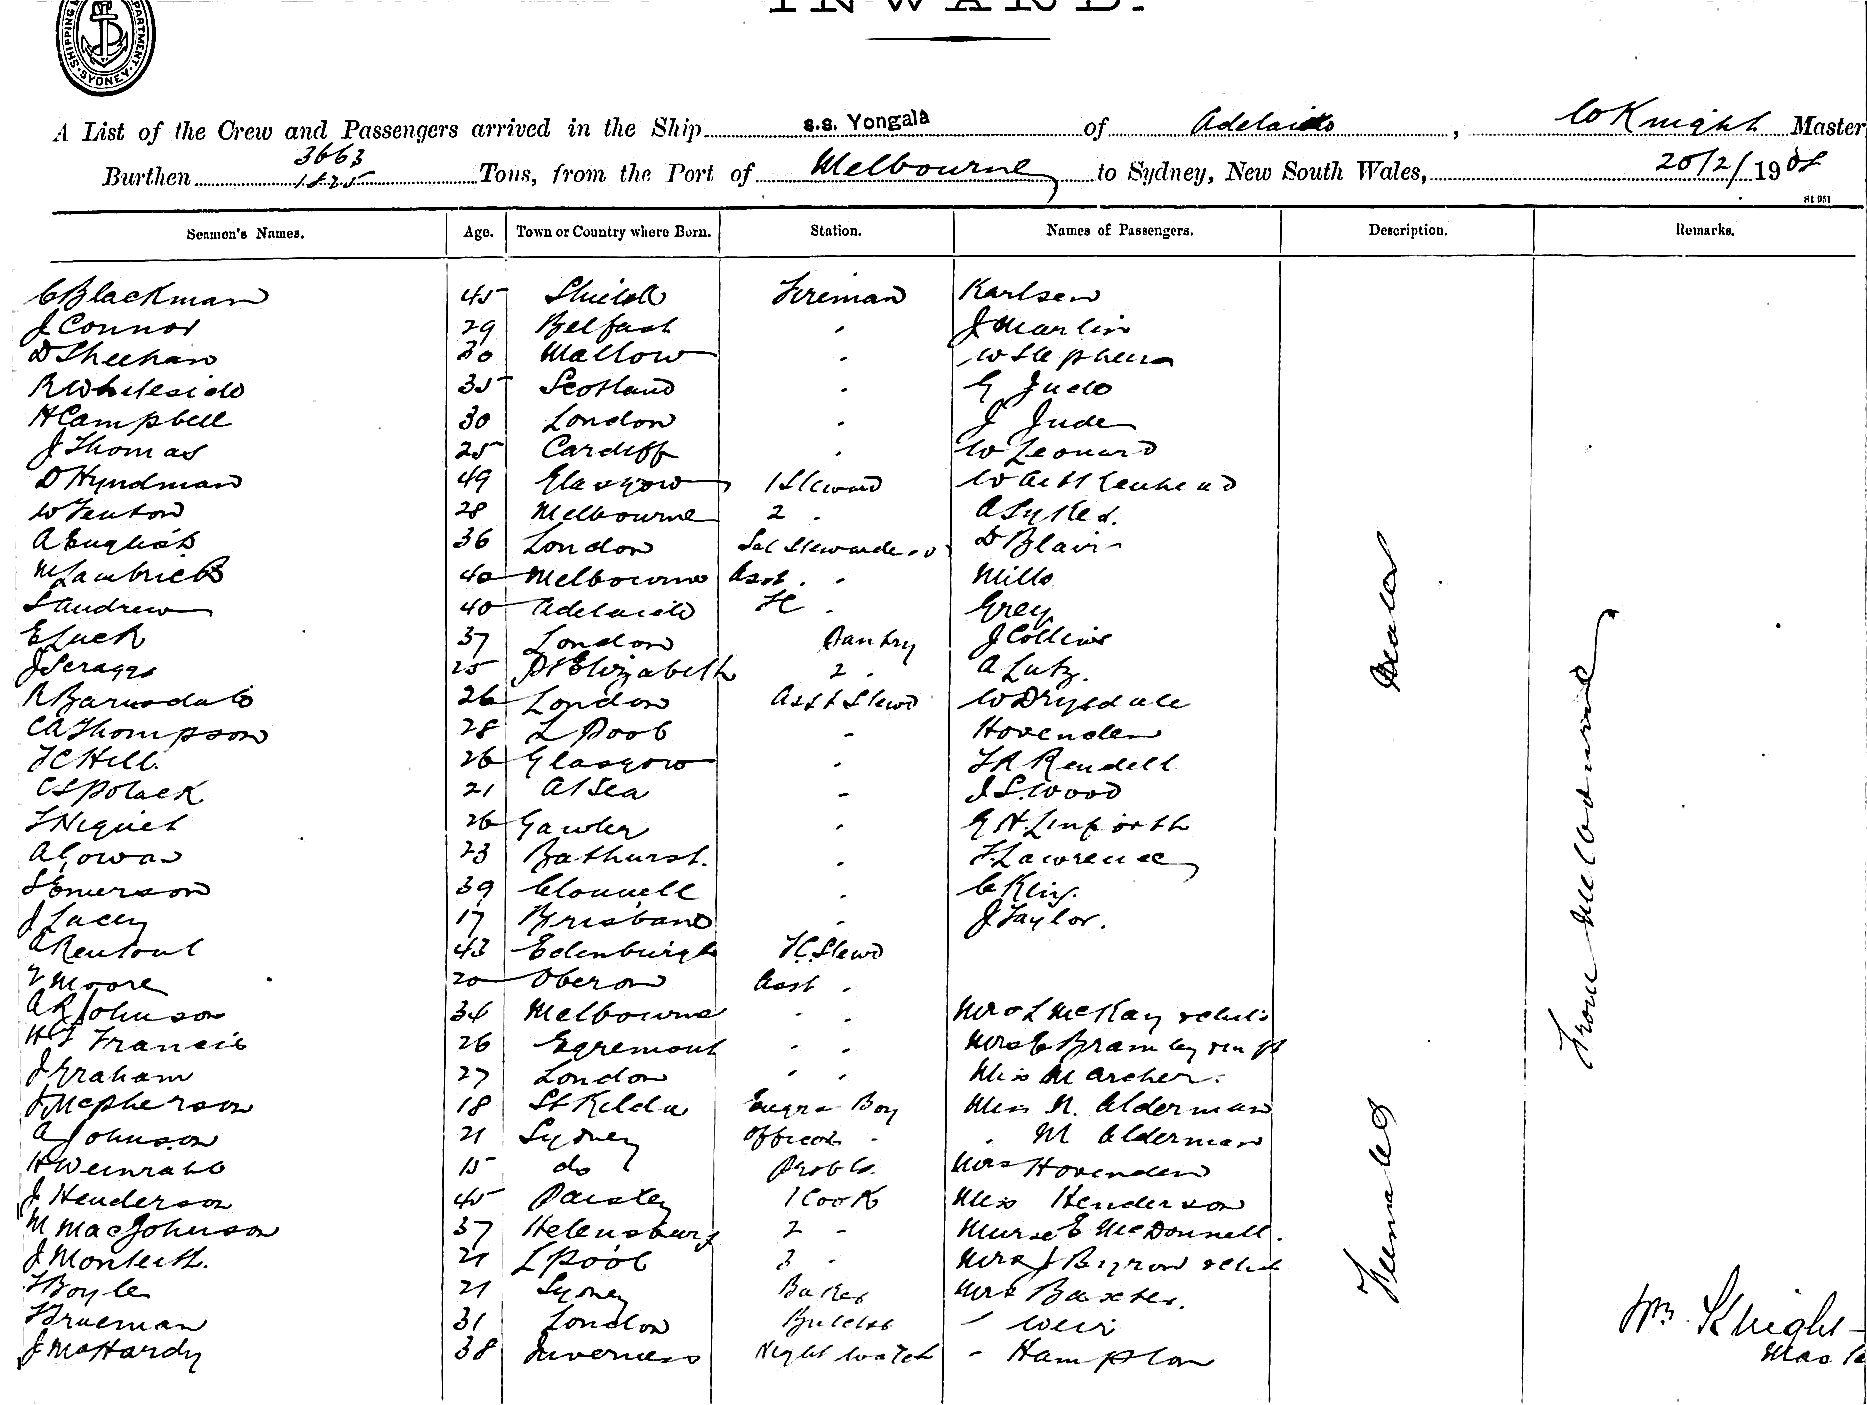 INWARD.
SHIPPING DEPARTMENT. SYDNEY.
A List of the Crew and Passengers arrived in the Ship s.s. Yongala of Adelaide, W Knight Master
3663
Burthen 1825 Tons, from the Port of Melbourne to Sydney, New South Wales, 20/2/1908
Seamen's Names. Age. Town or Country where Born. Station. Names of Passengers. Description. Remarks.
C Blackman 45 Shields Fireman Karlsen
J Connor 29 Belfast " J Martin
D Sheehan 30 Mallow " W Stephens
R Whiteside 35 Scotland " G Jude
H Campbell 30 London " J Jude
J Thomas 25 Cardiff " W Leonard
D Hyndman 49 Glasgow 1 Steward W
W Fenton 28 Melbourne 2 " A Sykes.
A English 36 London Sal Stewardess D Blair
M Lambrick 40 Melbourne Asst " " Mills
S Andrew 40 Adelaide FC " Grey
E Luck 37 London Pantry J Collins
J Scraggs 25 Pt Elizabeth 2 " A Lutz.
R Barnsdale 26 London Asst Stewd W Drysdale
CA Thompson 28 L Pool " Hovenden
FC Hill. 26 Glasgow " FR Rendell
CS Polack 21 At Sea " J S. Wood
F Niquet 26 Gawler " G H Linforth
A Gowan 23 Bathurst. " F. Lawrence
S Emerson 39 " C King.
J Lacey 17 Brisbane " J Taylor.
A Rentoul 43 Edenburgh FC. Stewd
F Moore 20 Oberon Asst "
A R Johnson 34 Melbourne " " Mrs L McKay & child
H J Francis 26 Egremont " " Mrs C Bramley
J Graham 27 London " " Miss M Archer.
J McPherson 18 St Kilda Engrs Boy Miss N. Alderman
A Johnson 21 Sydney Officers " " M Alderman
H Weinrabe 15 do Mrs Hovenden
J Henderson 45 Paisley 1 Cook Miss Henderson
M MacJohnson 37 Helensburg 2 " Nurse E McDonnell.
J Monteith. 21 L Pool 3 " Mrs J Byron & child
F Boyle 21 Sydney Baker Mrs Baxter.
F Trueman 31 London Butcher " Weir
J McHardy 38 Inverness Night Watch " Hampton
Males
Females
From Melbourne
Wm. Knight
Master